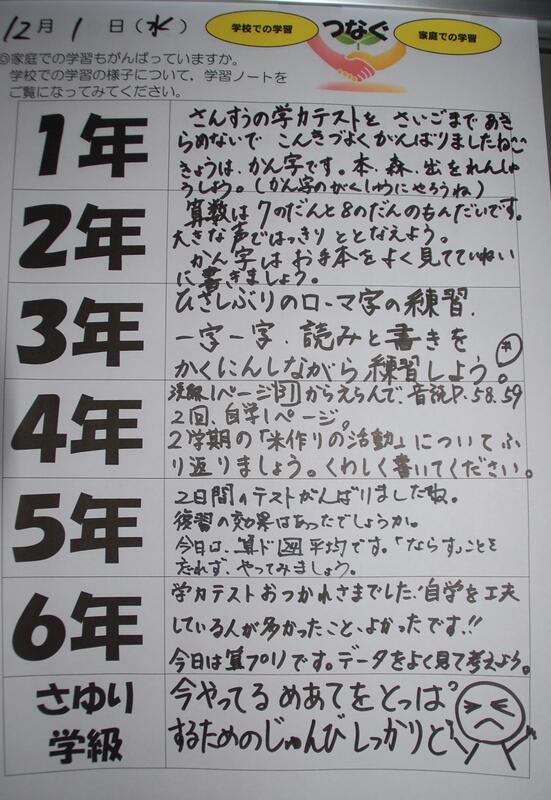 12月 1日（水）
学校での学習
つなぐ
家庭での学習
◎家庭での学習もがんばっていますか。
学校での学習の様子について，学習ノートを
ご覧になってみてください。
1年
さんすうの学力テストを さいごまで あき
らめないで こんきづよく がんばりましたね
きょうは、かん字です。本、森、出をれんしゅ
うしよう。（かん字のがくしゅうにやろうね）
2年
算数は7のだんと8のだんのもんだいです。
大きな声ではっきり ととなえよう。
かん字は お手本をよく見てていねい
に書きましょう。
3年
ひさしぶりのローマ字の練習.
一字一字、読みと書きを
かくにんしながら練習しよう。
4年
漢練1ページ 31 からえらんで、音読P.58.59
2回、自学1ページ。
2学期の「米作りの活動」についてふ
り返りましょう。くわしく書いてください。
5年
2日間のテストがんばりましたね。
復習の効果はあったでしょうか。
今日は、算ド 平均です。「ならす」ことを
忘れず、やってみましょう。
6年
学力テストおつかれさまでした！自学を工夫
している人が多かったこと、よかったです!!
今日は算プリです。データをよく見て考えよう。
さゆり
学級
今やってる めあてをとっぱ
するためのじゅんび しっかりと